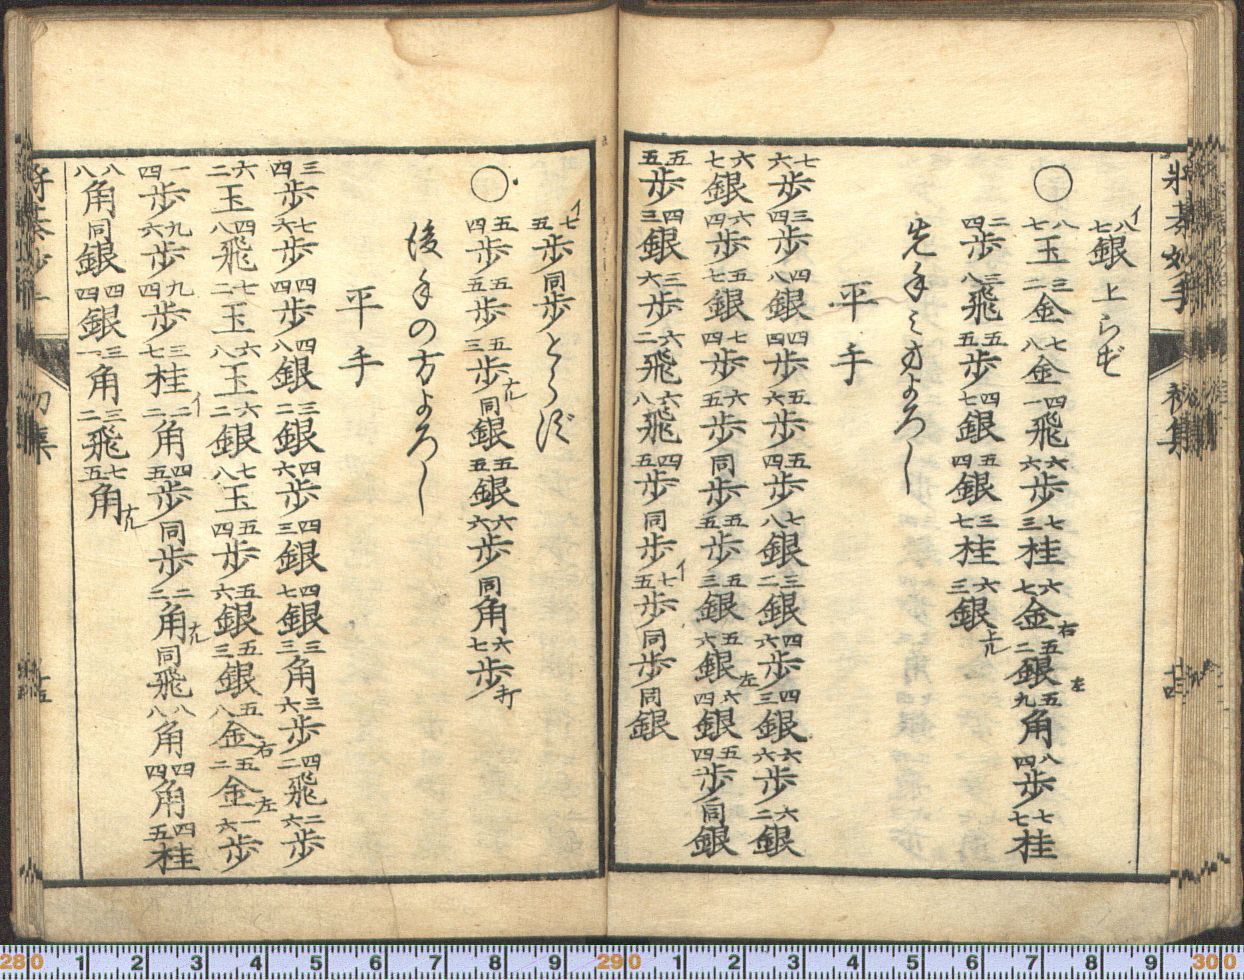 将棊妙手 初集 十四
イ八七銀上らず
○八七玉三二金七八金四一飛六六歩七三桂六七金右五二銀左五九角八四歩七七桂
二四歩三八飛五五歩四七銀五四銀三七桂六三銀上
先手之方よろし
平手
七六歩三四歩四八銀四四歩五六歩五四歩七八銀三二銀四六歩四三銀六六歩六二銀
六七銀六四歩五七銀七四歩六五歩同歩五五歩五三銀五六銀左六四銀五四歩同銀
五五歩四三銀三六歩六二飛六八飛四五歩同歩イ七五歩同歩同銀
イ七五歩同歩とらず
○五四歩五五歩五三歩成同銀五五銀六六歩同角六七歩打
後手の方よろし
平手
三四歩七六歩四四歩四八銀三二銀四六歩四三銀四七銀三三角三六歩四二飛二六歩
六二玉四八飛七二玉六八玉六二銀七八玉五四歩五六銀五三銀五八金右五二金左一六歩
一四歩九六歩九四歩三七桂イ二二角四五歩同歩二二角成同飛八八角四四角四五桂
八八角同銀四四銀三一角三二飛七五角成